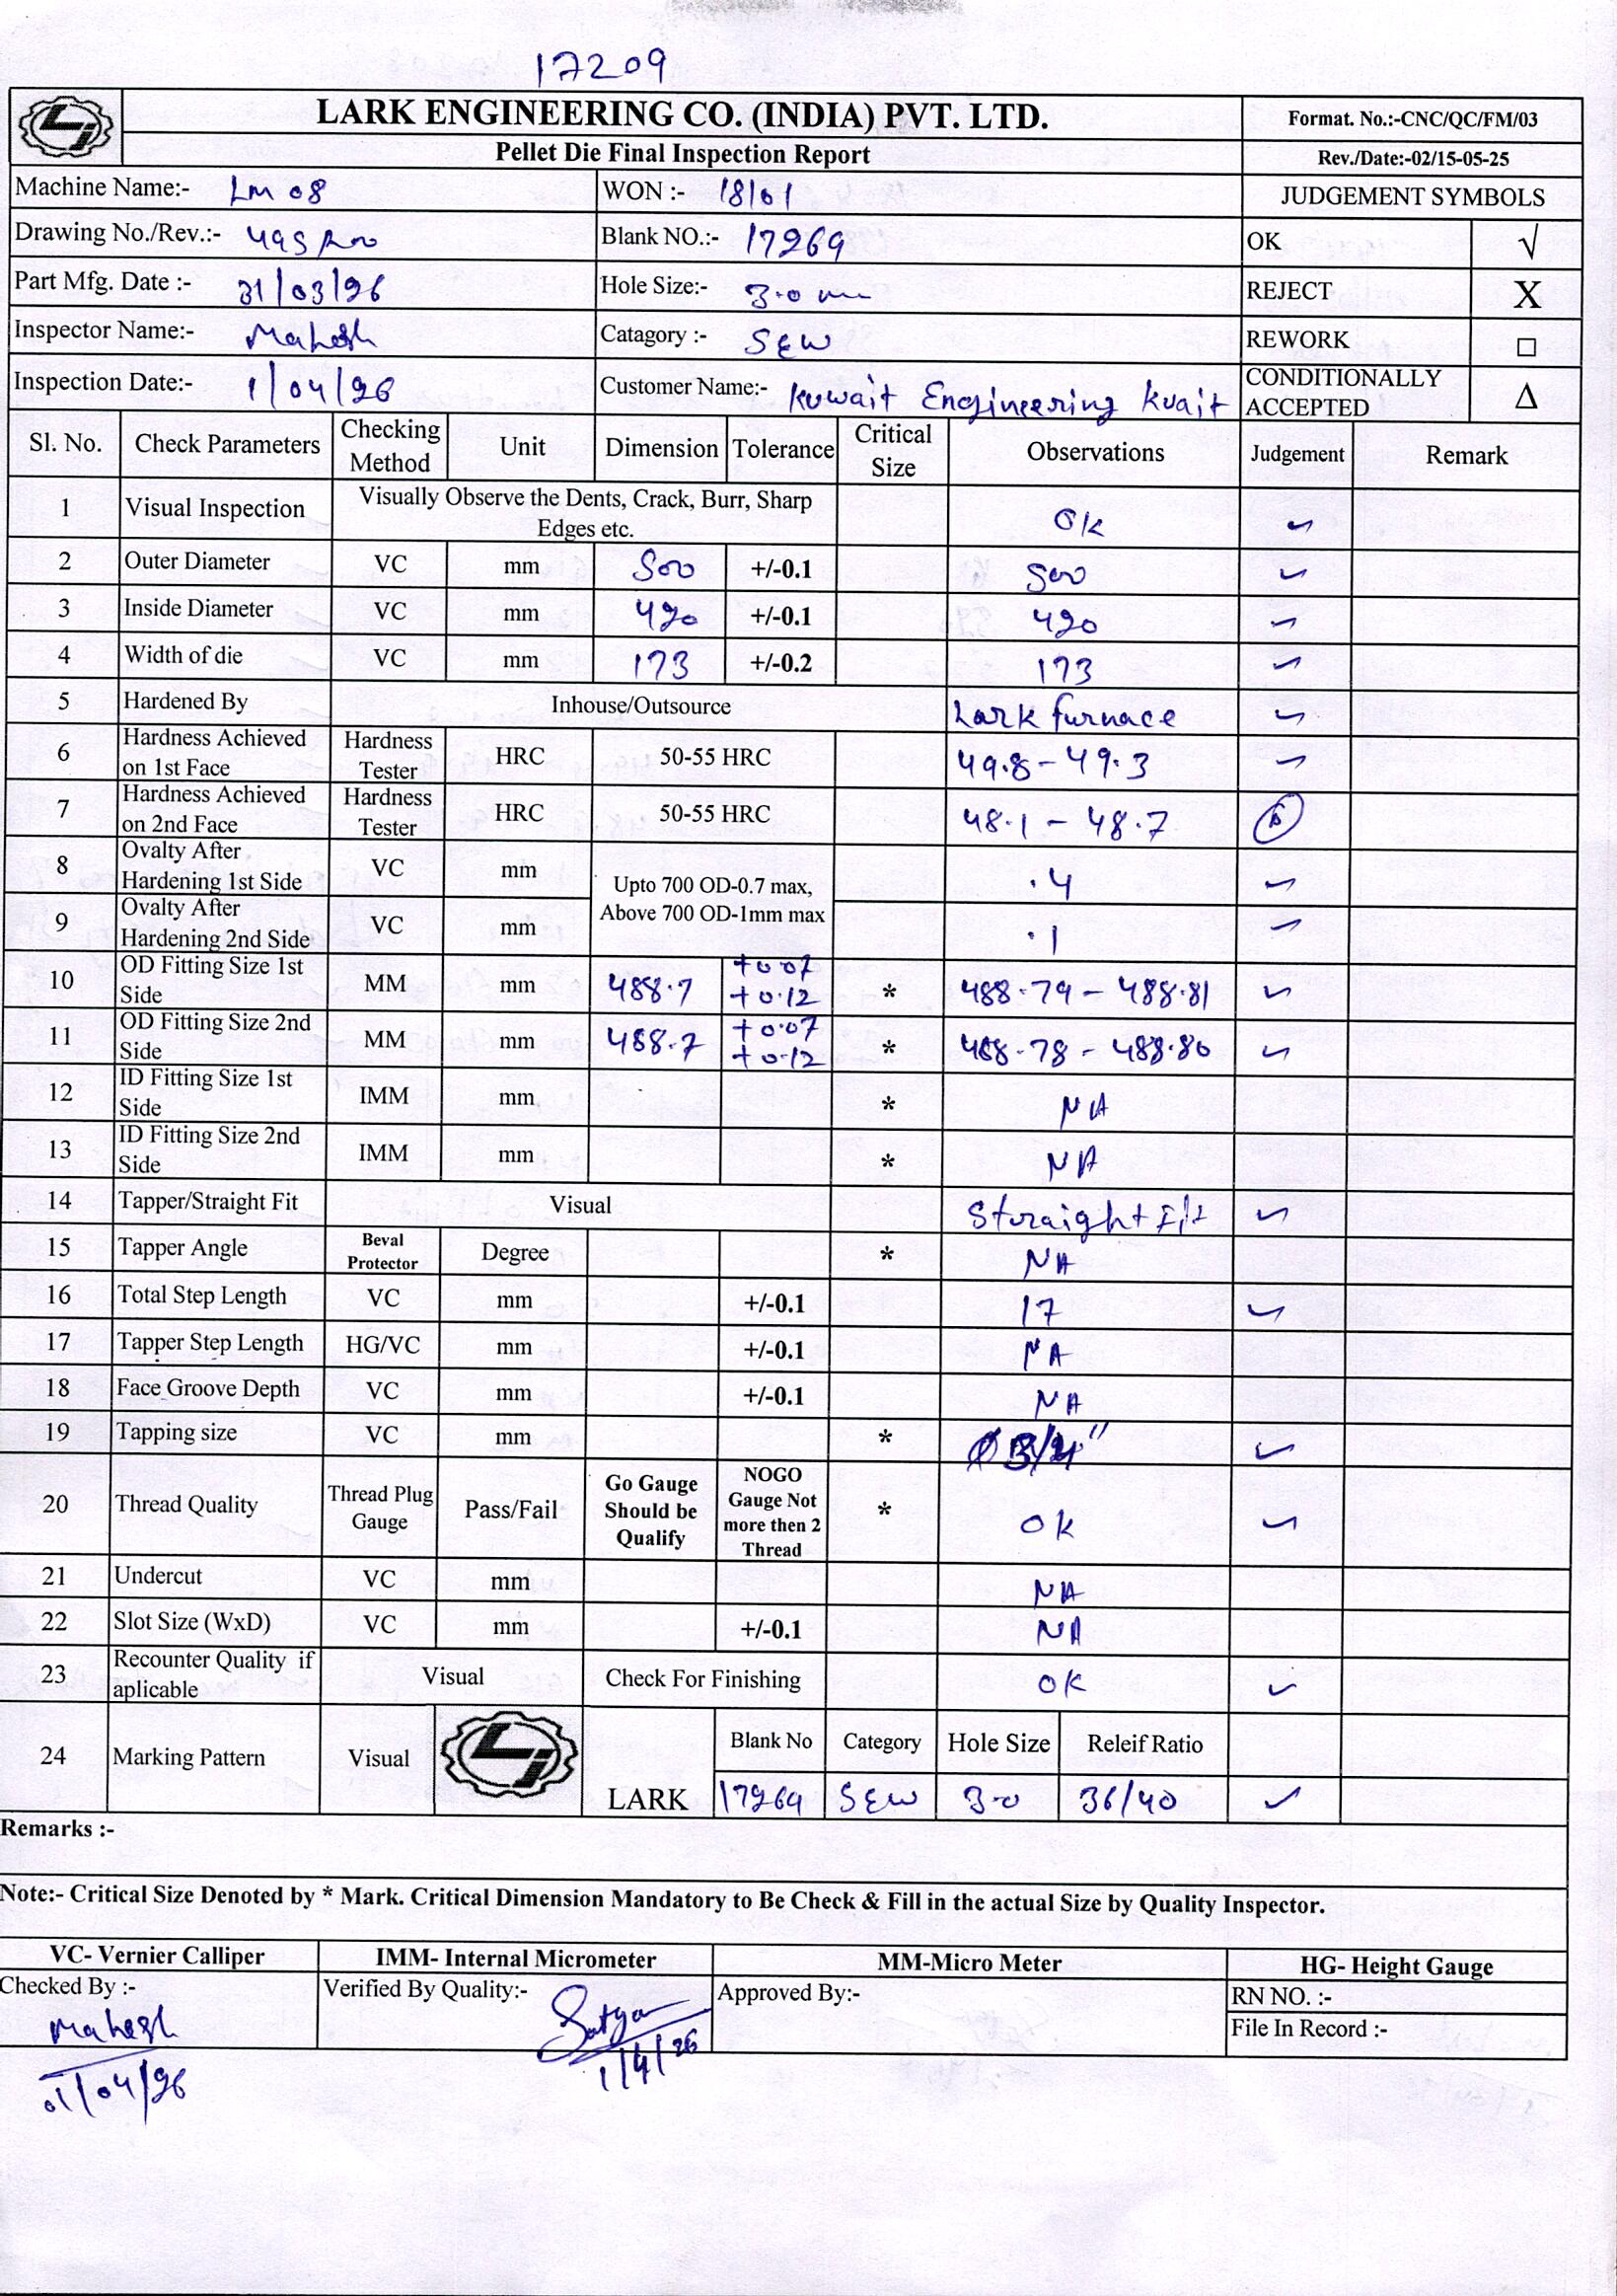 17209
LARK ENGINEERING CO. (INDIA) PVT. LTD.
Format. No.:-CNC/QC/FM/03
Pellet Die Final Inspection Report
Rev./Date:-02/15-05-25
Machine Name:- LM 08 WON :- 18/01 JUDGEMENT SYMBOLS
Drawing No./Rev.:- Blank NO.:- 17269 OK √
Part Mfg. Date :- 31/03/26 Hole Size:- 3.0 mm REJECT X
Inspector Name:- Mahesh Catagory :- SEW REWORK □
Inspection Date:- 1/04/26 Customer Name:- Kuwait Engineering Kuait CONDITIONALLY ACCEPTED Δ
Sl. No. Check Parameters Checking Method Unit Dimension Tolerance Critical Size Observations Judgement Remark
1 Visual Inspection Visually Observe the Dents, Crack, Burr, Sharp Edges etc. OK ✓
2 Outer Diameter VC mm 500 +/-0.1 500 ✓
3 Inside Diameter VC mm 420 +/-0.1 420 ✓
4 Width of die VC mm 173 +/-0.2 173 ✓
5 Hardened By Inhouse/Outsource Lark furnace ✓
6 Hardness Achieved on 1st Face Hardness Tester HRC 50-55 HRC 49.8-49.3 ✓
7 Hardness Achieved on 2nd Face Hardness Tester HRC 50-55 HRC 48.1-48.7
8 Ovalty After Hardening 1st Side VC mm Upto 700 OD-0.7 max, Above 700 OD-1mm max .4 ✓
9 Ovalty After Hardening 2nd Side VC mm .1 ✓
10 OD Fitting Size 1st Side MM mm 488.7 +0.07 +0.12 * 488.79-488.81 ✓
11 OD Fitting Size 2nd Side MM mm 488.7 +0.07 +0.12 * 488.78-488.80 ✓
12 ID Fitting Size 1st Side IMM mm * NA
13 ID Fitting Size 2nd Side IMM mm * NA
14 Tapper/Straight Fit Visual Straight Fit ✓
15 Tapper Angle Beval Protector Degree * NA
16 Total Step Length VC mm +/-0.1 17 ✓
17 Tapper Step Length HG/VC mm +/-0.1 NA
18 Face Groove Depth VC mm +/-0.1 NA
19 Tapping size VC mm * Ø 3/4" ✓
20 Thread Quality Thread Plug Gauge Pass/Fail Go Gauge Should be Qualify NOGO Gauge Not more then 2 Thread * OK ✓
21 Undercut VC mm NA
22 Slot Size (WxD) VC mm +/-0.1 NA
23 Recounter Quality if aplicable Visual Check For Finishing OK ✓
24 Marking Pattern Visual LARK Blank No Category Hole Size Releif Ratio
17269 SEW 3.0 36/40 ✓
Remarks :-
Note:- Critical Size Denoted by * Mark. Critical Dimension Mandatory to Be Check & Fill in the actual Size by Quality Inspector.
VC- Vernier Calliper IMM- Internal Micrometer MM-Micro Meter HG- Height Gauge
Checked By :- Mahesh 01/04/26
Verified By Quality:- Satya 1/4/26
Approved By:-
RN NO. :-
File In Record :-